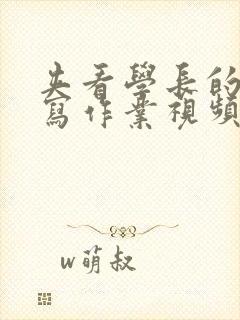 夫看學長的
寫作業視頻
w萌叔